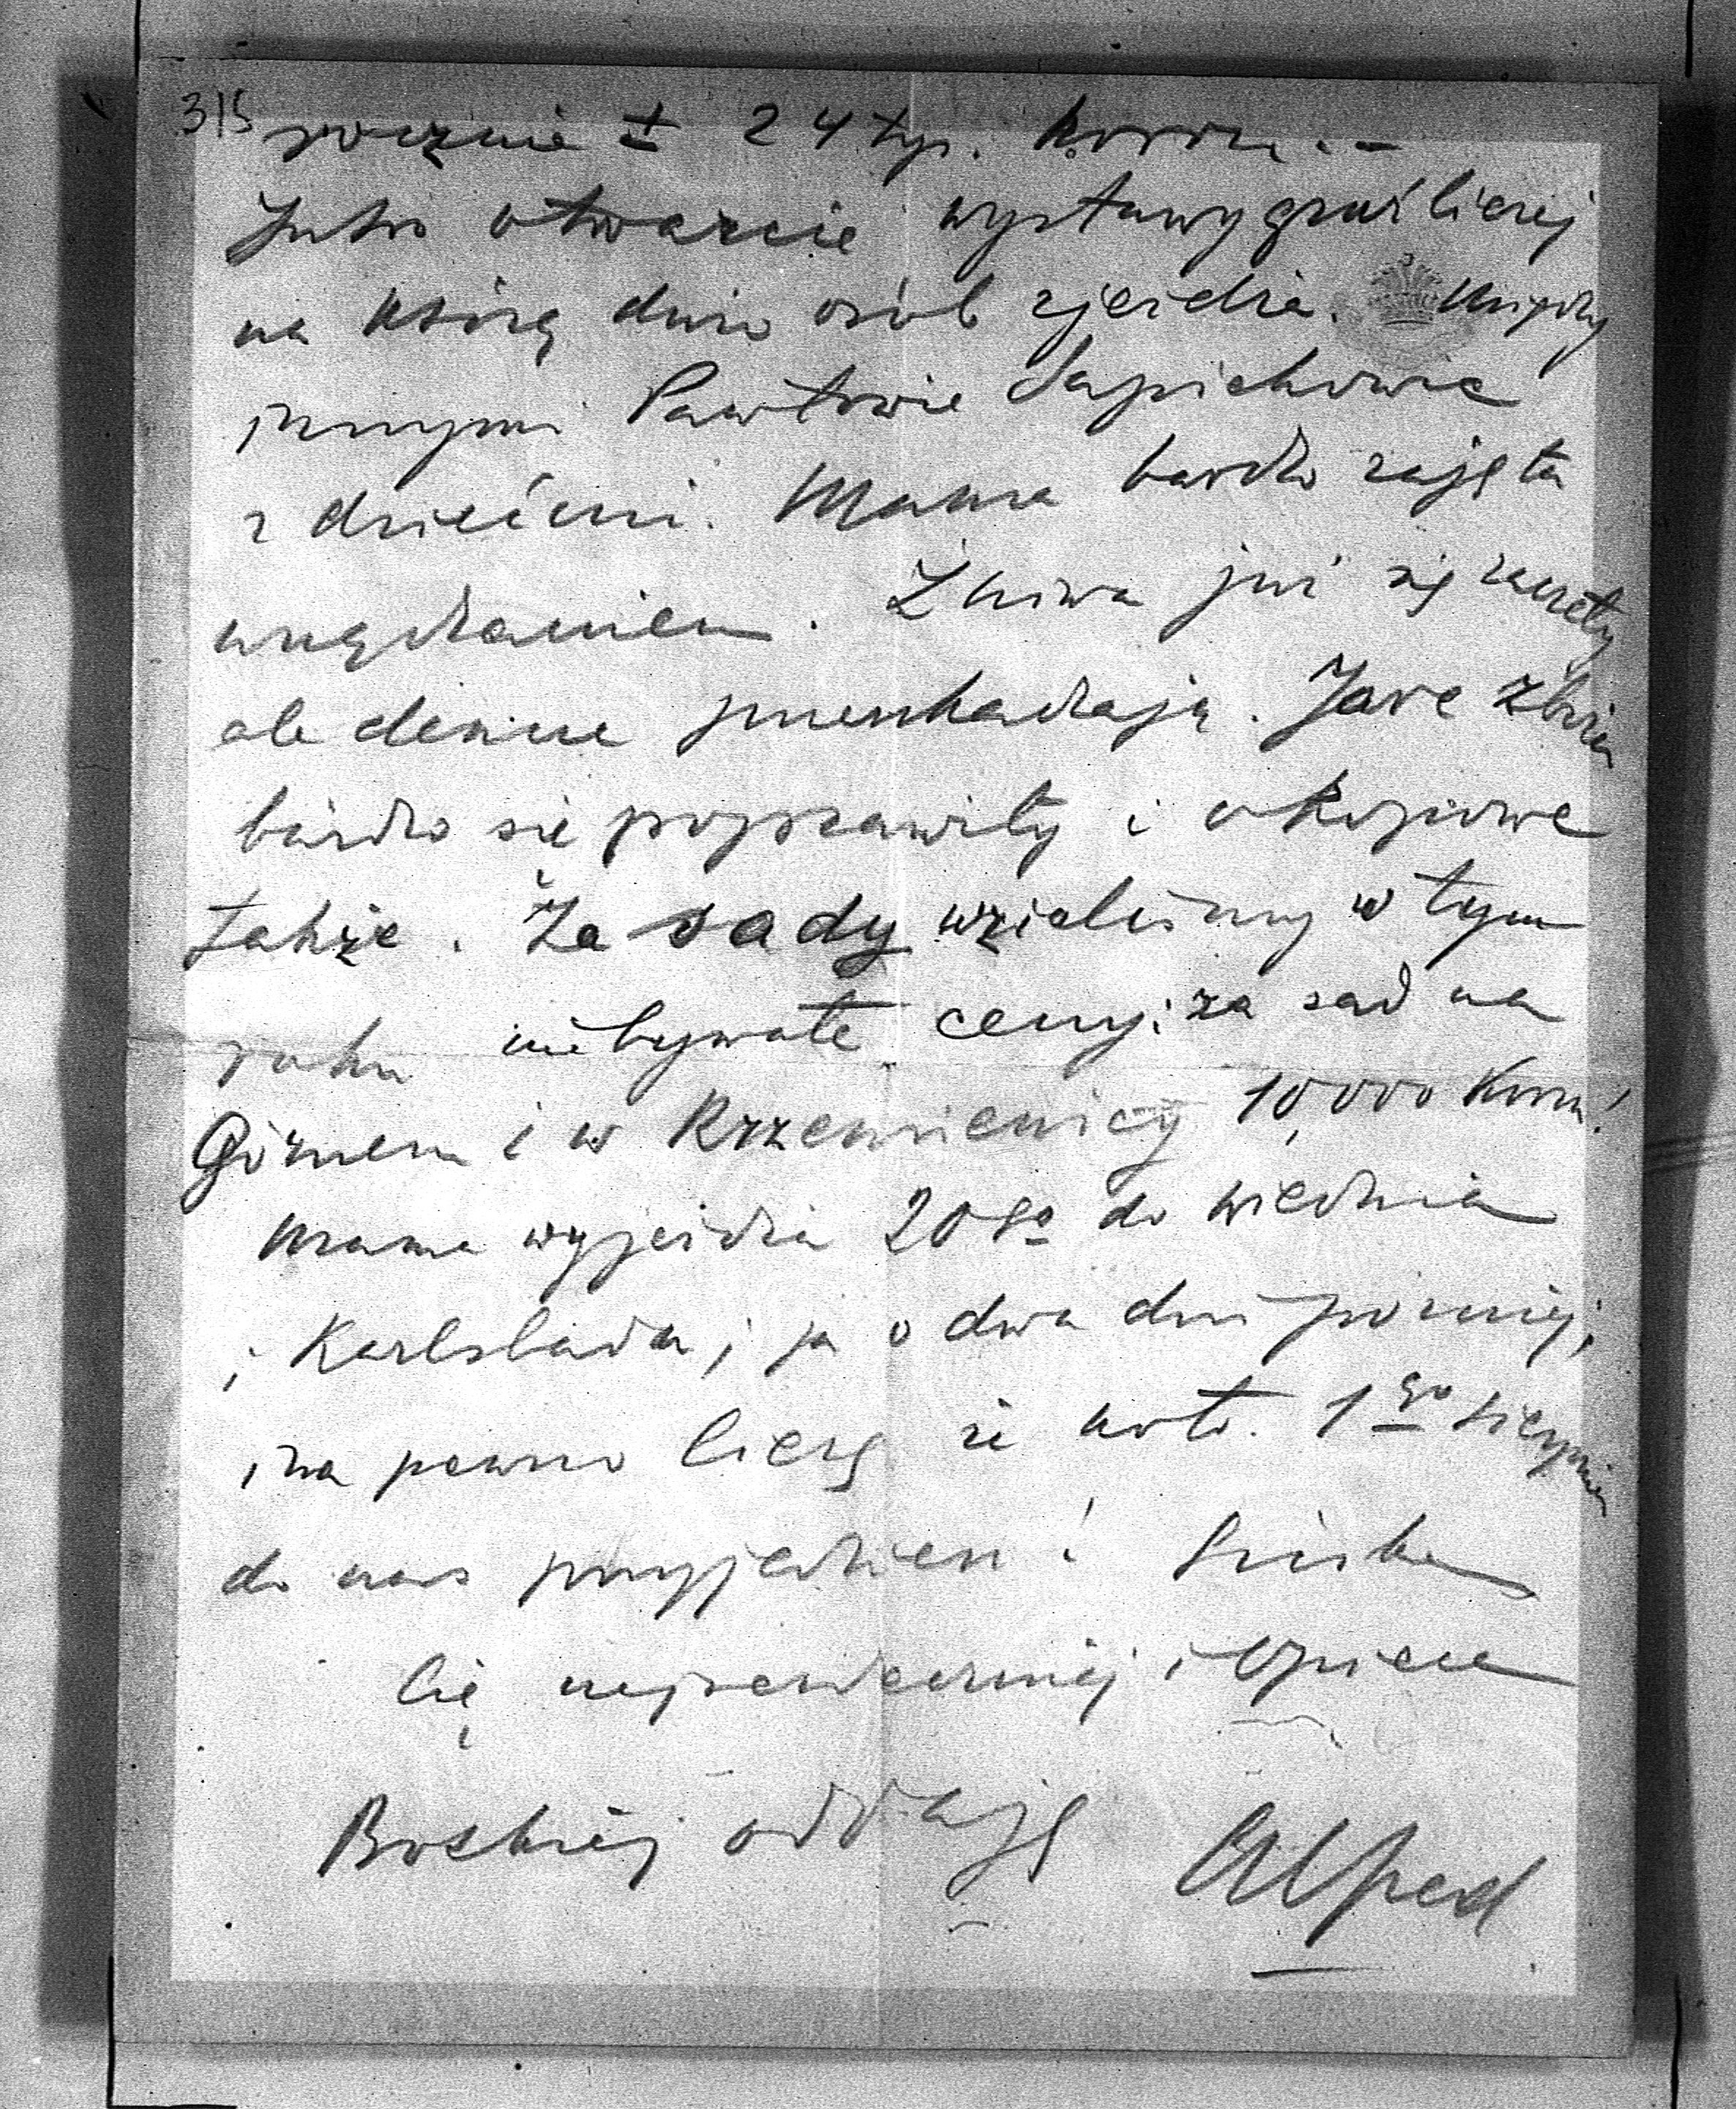 315
rocznie ± 24 tys. koron. -
Jutro otwarcie wystawy gruźliczej
na którą dużo osób zjeżdża. Między
innymi Pawłowie Sapiehowie
z dziećmi. Mama bardzo zajęta
urządzaniem. Żniwa już się zaczęły
ale deszcze przeszkadzają. Jare zboża
bardzo się poprawiły i okopowe
także. Za sady wzieliśmy w tym
roku niebywałe ceny: za sad na
Górnem i w Krzemienicy 10,000 Kron!
Mama wyjeżdża 20go do Wiednia
i Karlsbadu, ja o dwa dni poźniej,
i na pewno liczę że koło 1go sierpnia
do nas przyjedziesz! Ściskam
Cię najserdeczniej i Opiece
Boskiej oddaję Alfred